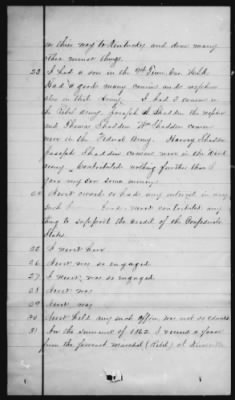 on their way to Kentucky and done many
other minor things.
23 I had a son in the 9th Tenn. Cav. Vols.
Had a good many cousins and nephews
also in that Army. I had 3 cousins in
the Rebel army, Joseph Shadden the nephew
and Thomas Shadden Wm Shadden cousins
were in the Federal Army. Harvey Shadden
Joseph Shadden cousins were in the Rebel
army. Contributed nothing further than I
gave my son some money.
24 Never owned or had any interest in any
such I never contributed any
thing to support the credit of the Confederate
States.
25 I never have
26 Never was so engaged
27 I never was so engaged
28 Never was
29 Never was
30 Never held any such office, was not so
31 In the summer of 1862 I secured a pass
from the provost marshal (Rebel) at Knoxville